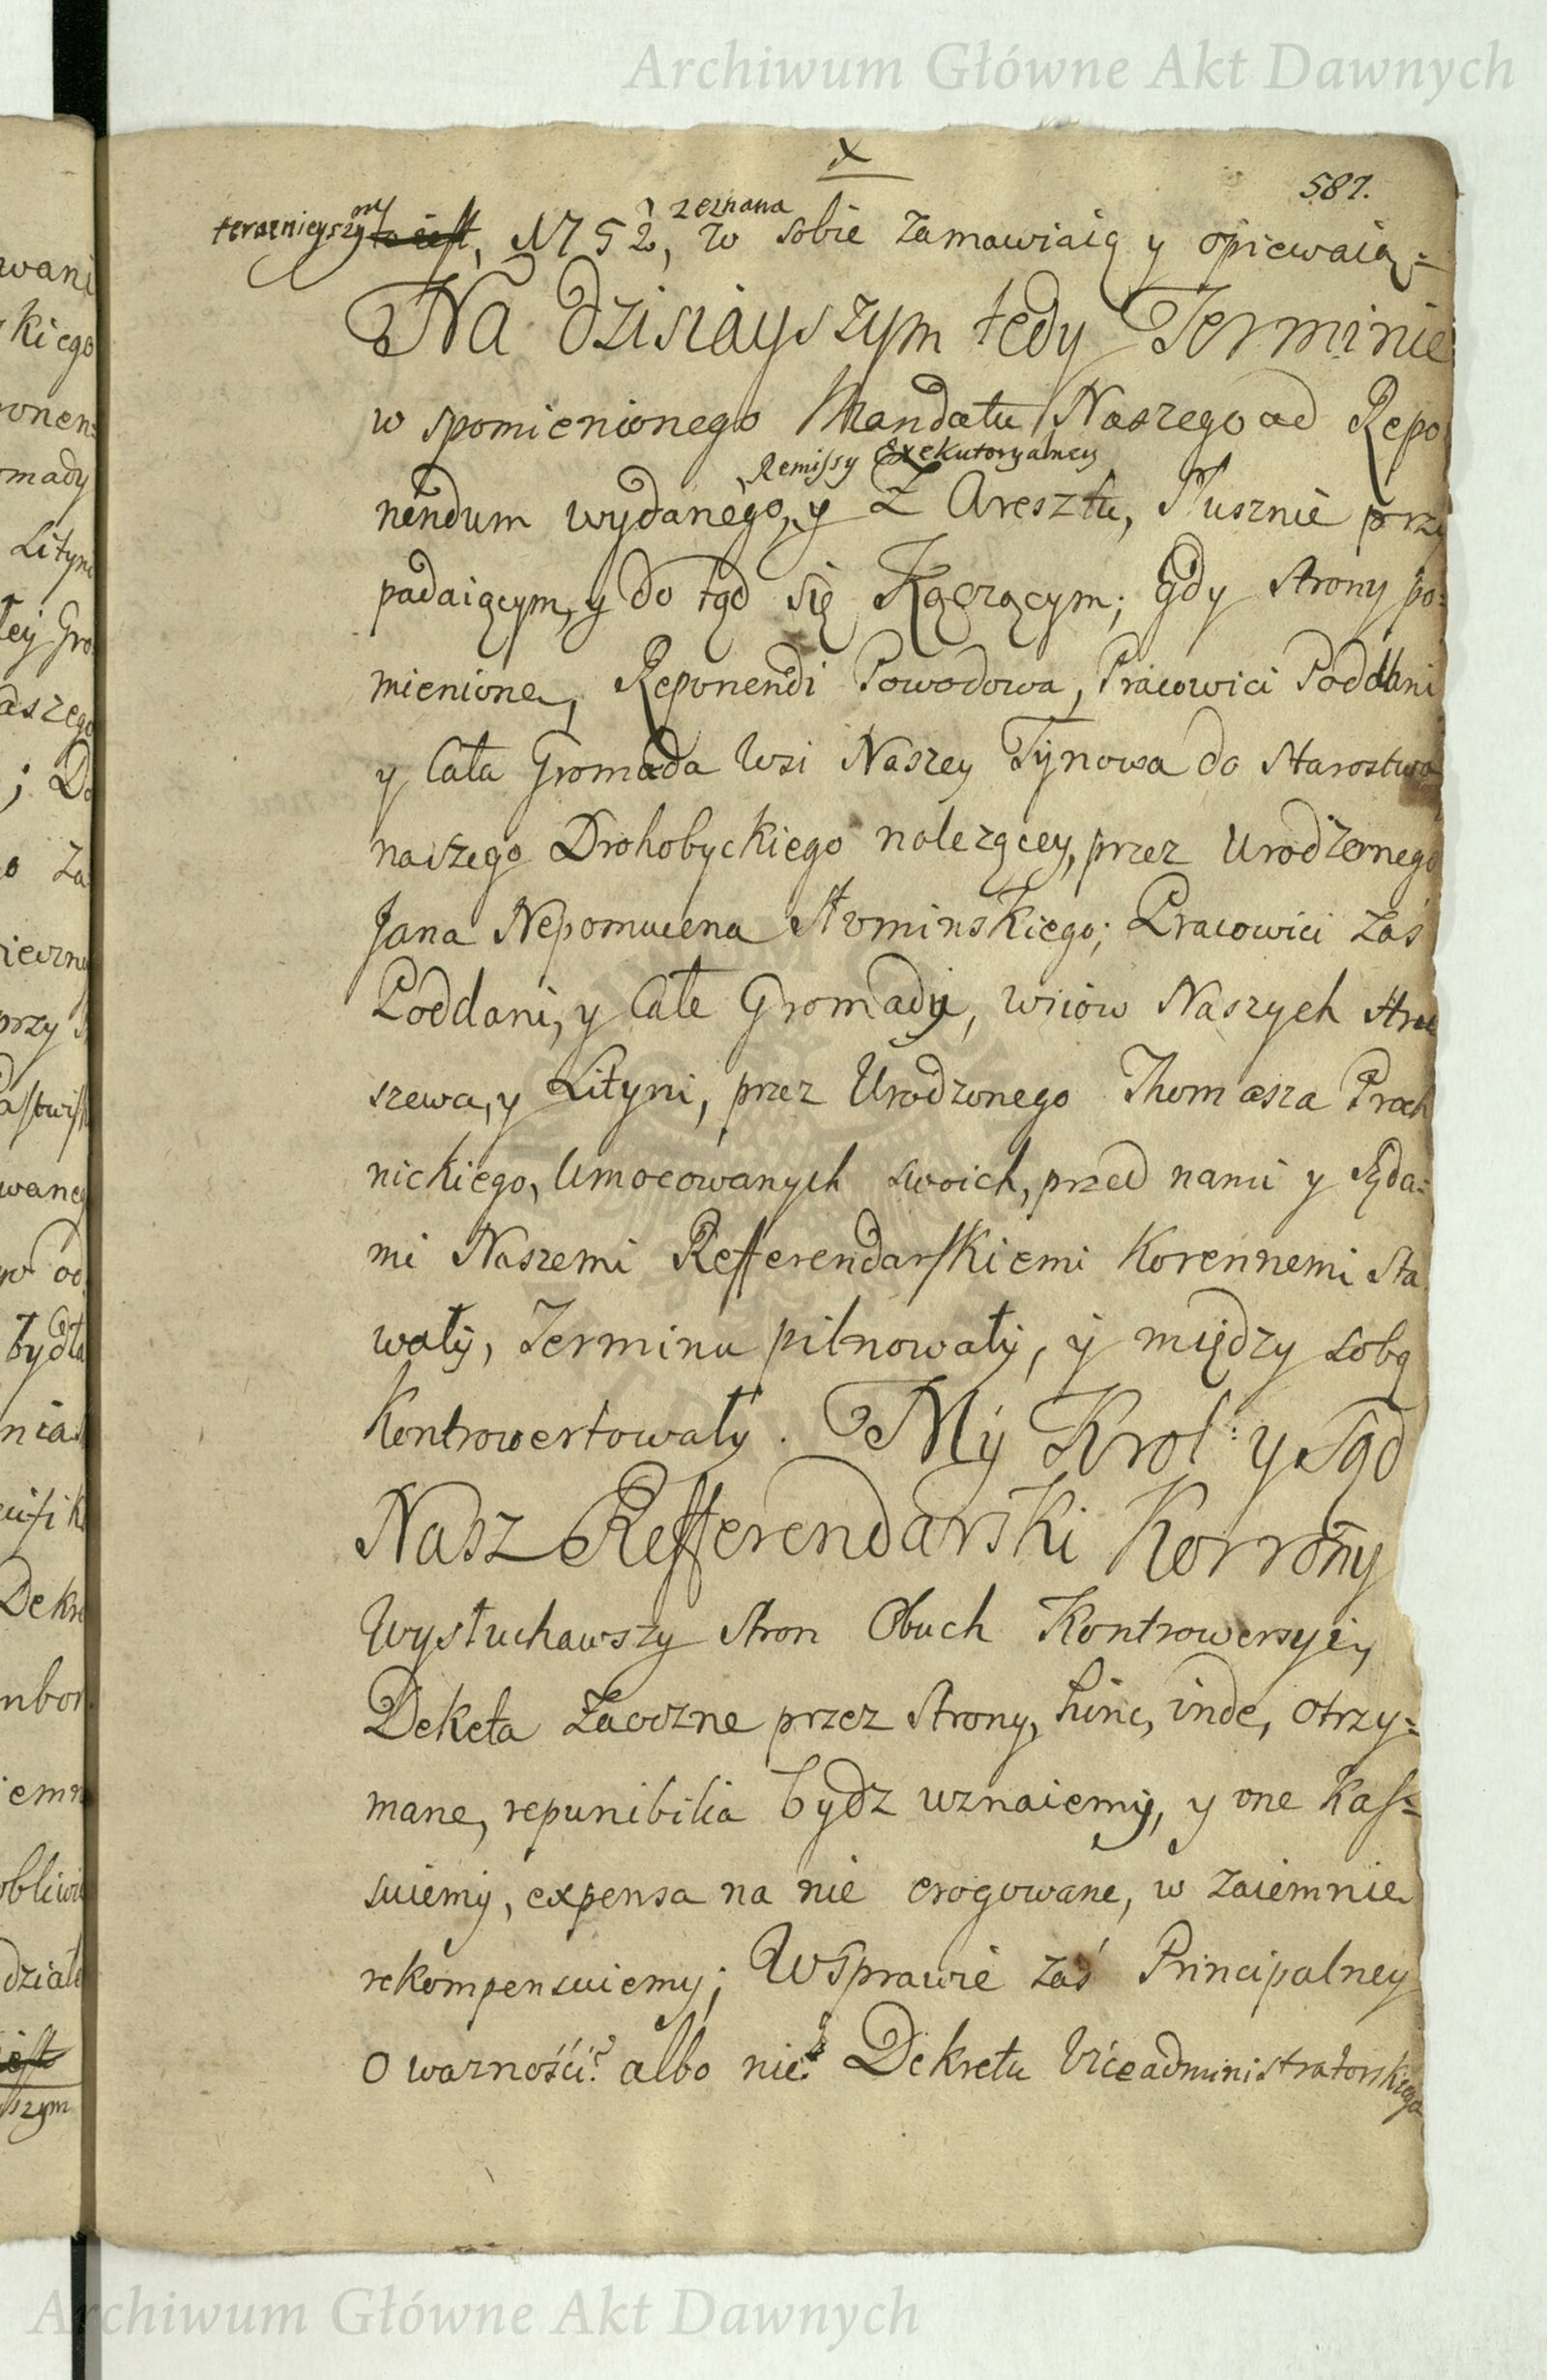 Archiwum Główne Akt Dawnych
x
587.
zeznana
teraznieyszym to iest, 1752, w sobie zamawiaią y opiewaią:
Na dzisiayszym tedy Terminie
w spomienionego Mandatu Naszego ad Repo
Remissy Exekutoryalney
nendum wydanego, y z Aresztu, słusznie przy
padaiącym, y do tąd się Łączącym; Gdy strony po:
mienione, Reponendi Powodowa, Pracowici Poddani
y Cała Gromada Wsi Naszey Tynowa do Starostwa
naszego Drohobyckiego nalezącey, przez Urodzonego
Jana Nepomucena Słominskiego; Pracowici zaś
Poddani, y Całe Gromady, wsiow Naszych Hru
szewa, y Lityni, przez Urodzonego Thomasza Proch
nickiego, Umocowanych swoich, przed nami y Sąda:
mi Naszemi Refferendarskiemi Korennemi sta
wały, Terminu pilnowały, y między sobą
kontrowertowały. My Krol: y Sąd
Nasz Refferendarski Koronny
Wysłuchawszy stron Obuch Kontrowersyi,
Deketa zaoczne przez strony, hinc, inde, otrzy:
mane, repunibilia bydz uznaiemy, y one kas:
suiemy, expensa na nie erogowane, w zaiemnie
rekompensuiemy; W Sprawie zaś Principalney
o wazności? albo nie? Dekretu Viceadministratorskiego
Archiwum Główne Akt Dawnych